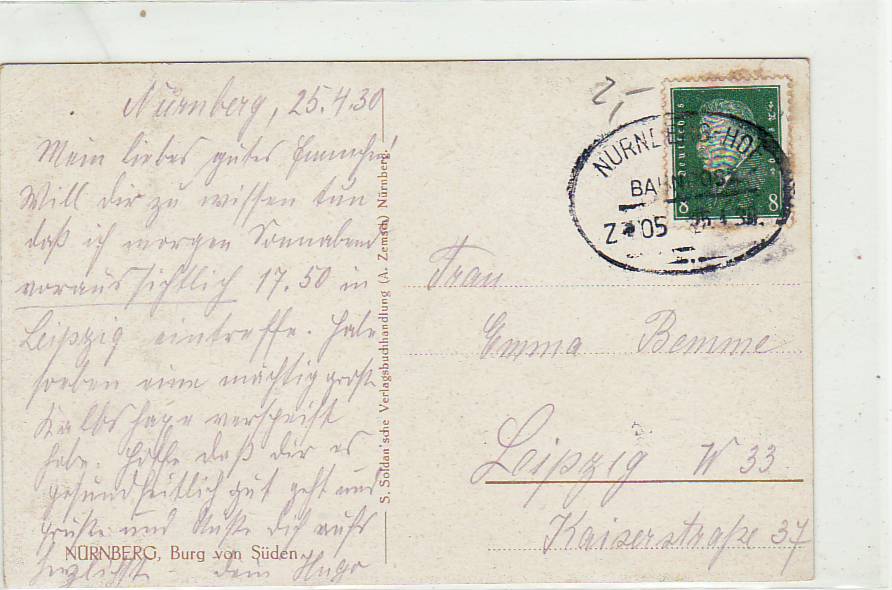 Nürnberg, 25.4.30
Mein liebes gutes
Will dir zu wissen tun
daß ich morgen Sonnabend
voraussichtlich 17.50 in
Leipzig eintreffe. Habe
soeben eine mächtig große
Kalbshaxe verspeist
habe. Hoffe daß dir es
gesundheitlich gut geht und
grüße und küße dich aufs
herzlichst - dein Hugo
NÜRNBERG, Burg von Süden
S. Soldan'sche Verlagsbuchhandlung (A. Zemsch) Nürnberg.
2,-
Deutsches
8 8
NÜRNBERG-HOF
BAHNPOST
Z 705 25.4.30.
Frau
Emma Bemme
Leipzig W 33
Kaiserstraße 37